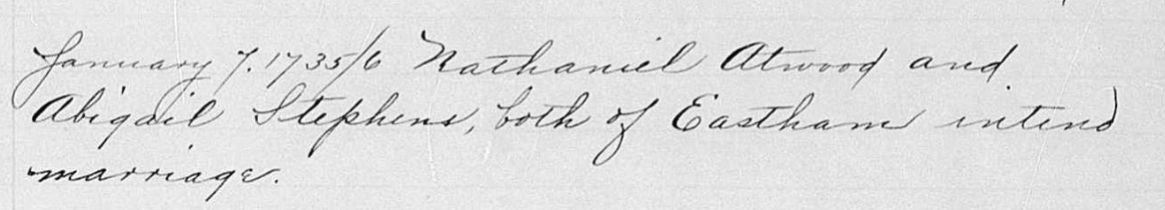 January 7. 1735/6 Nathaniel Atwood and
Abigail Stephens, both of Eastham intend
marriage.